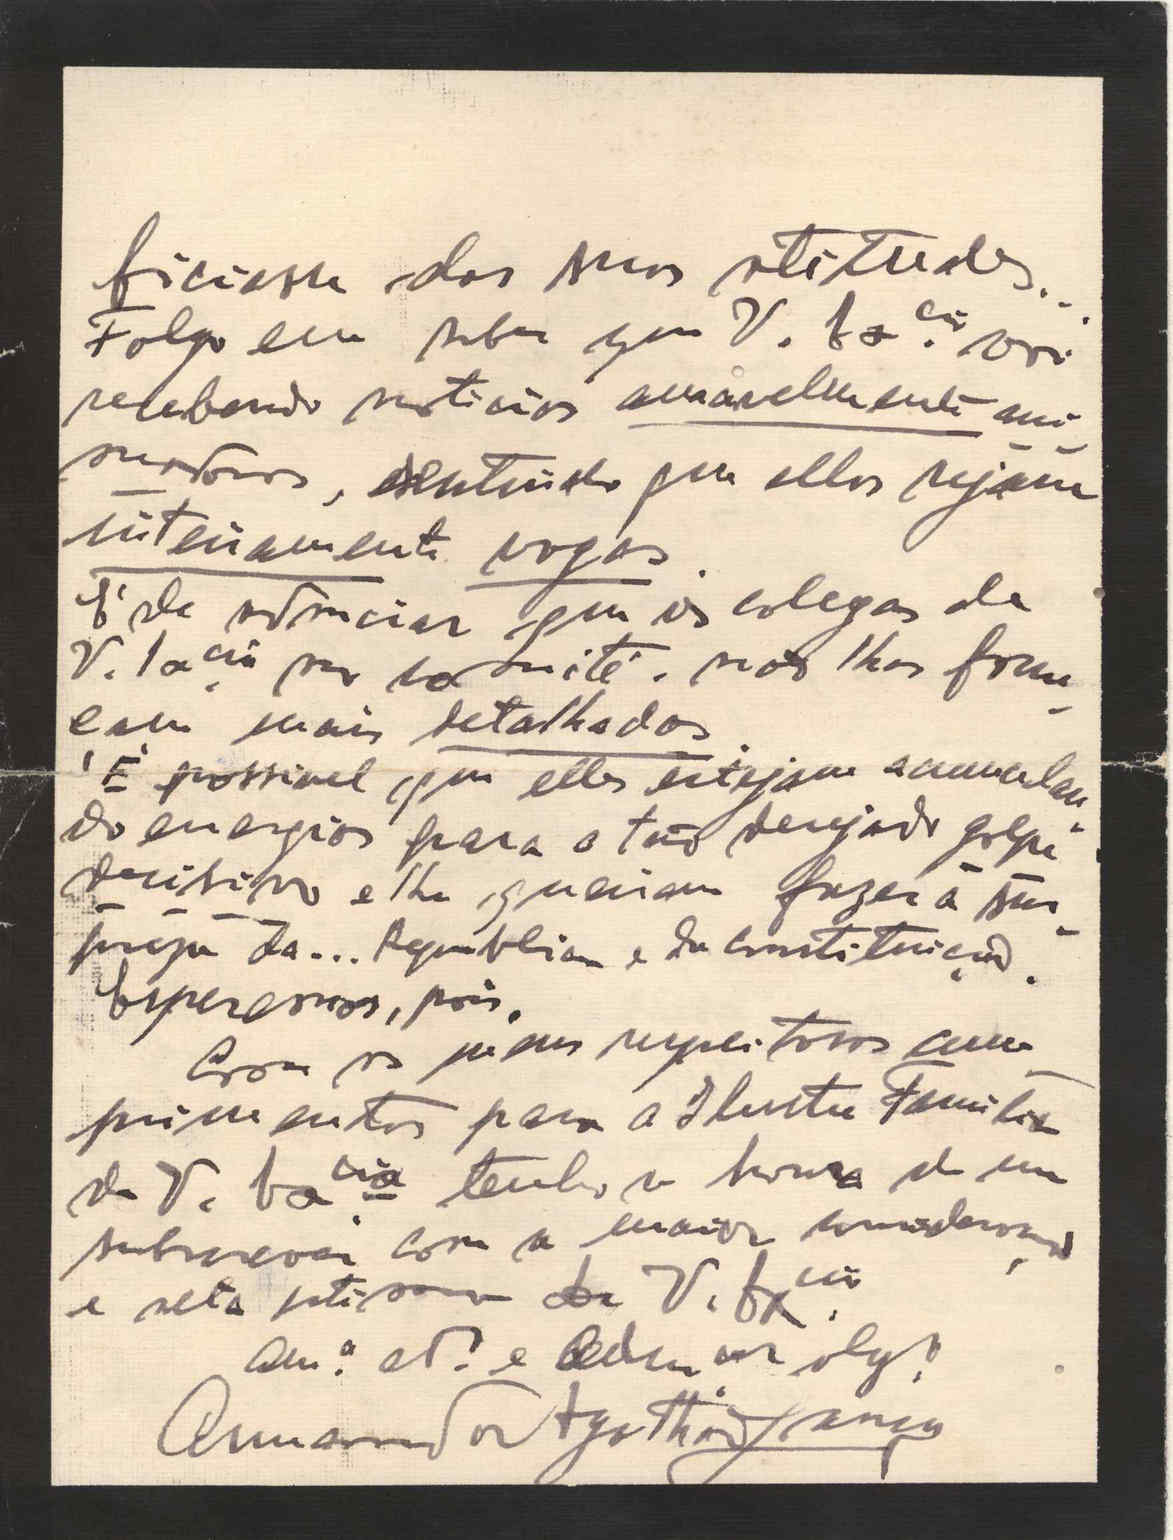 ficiasse das suas atitudes...
Folgo em saber que V. Ex.cia vai
recebendo noticias amavelmente ani-
madoras, sentindo que ellas sejam
inteiramente vagas.
É de admirar que os colegas de
V. Ex.cia no comité. não lhas forne-
çam mais detalhadas
É possivel que elles estejam acumulan-
do energias para o tão desejado golpe
decisivo e lhe queiram fazer a sur-
preza da... Republica e da Constituição.
Esperemos, pois.
Com os meus respeitosos cum-
primentos para a Illustre Familia
de V. Ex.cia tenho a honra de me
subscrever com a maior consideração
e alta estima de V. Ex.cia
Am.º at.º e Adm.or obg.º